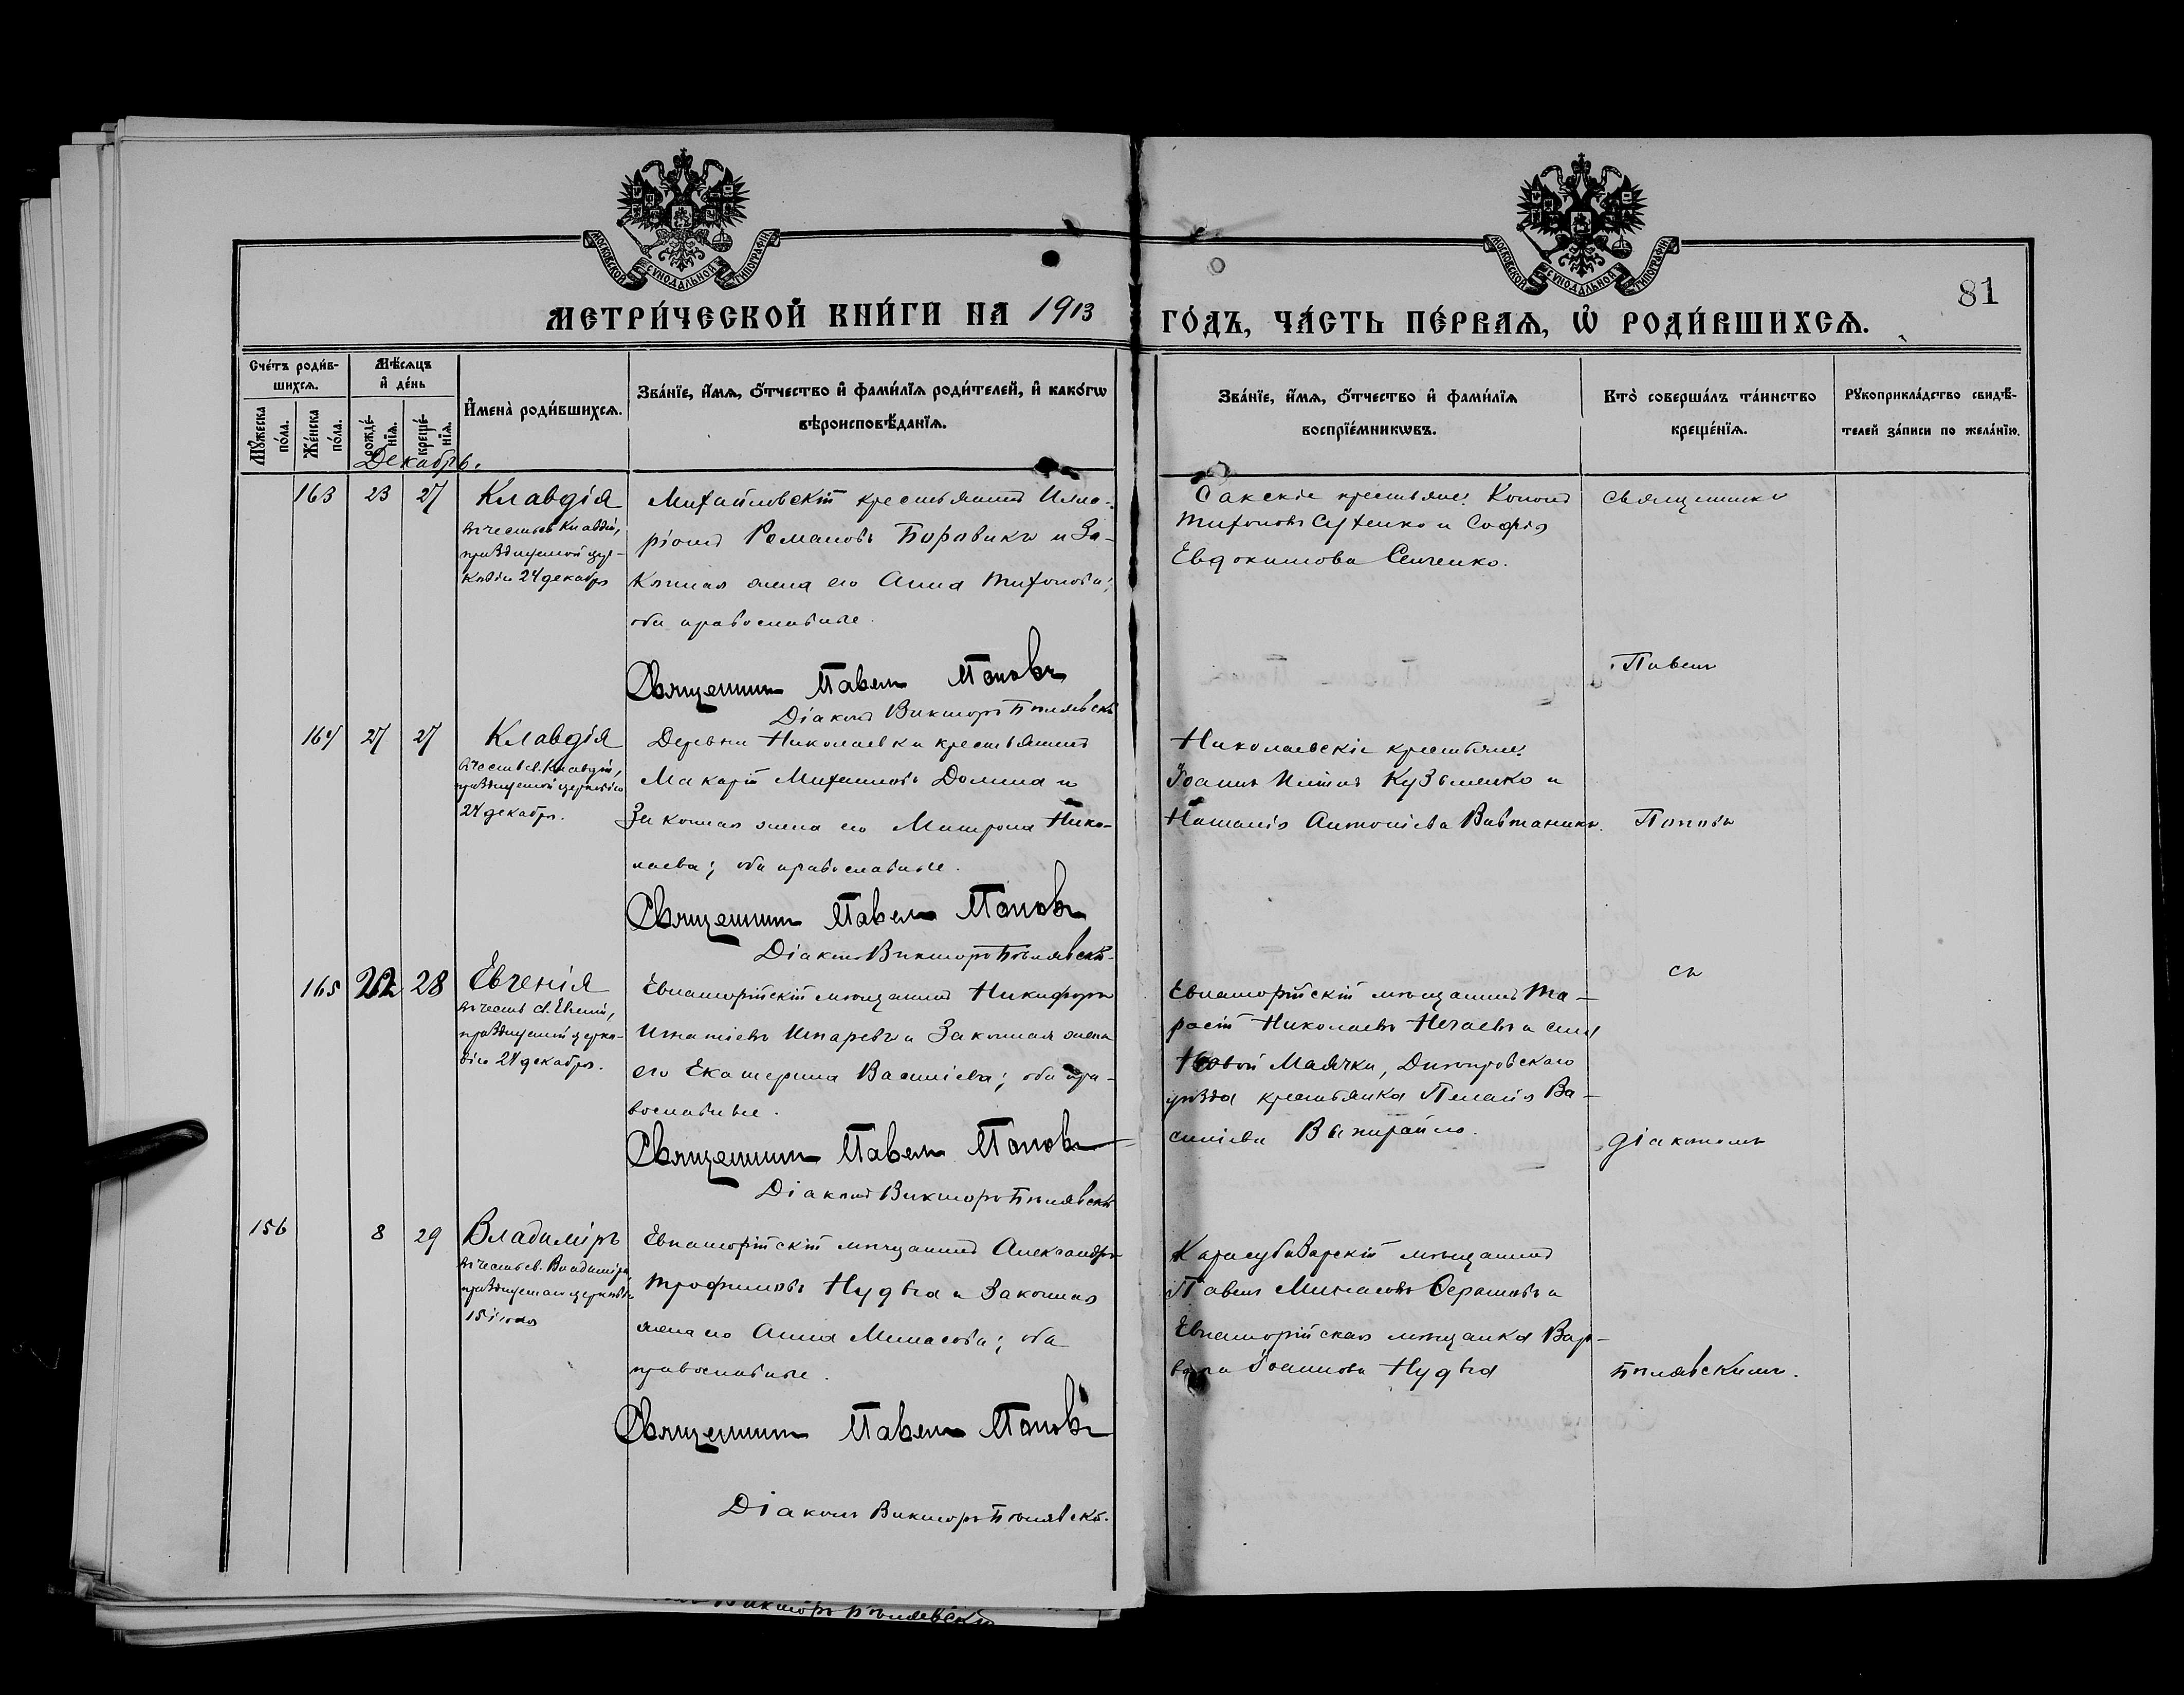 МОСКОВСКОЙ СѴНОДАЛЬНОЙ ТИПОГРАФІИ
МОСКОВСКОЙ СѴНОДАЛЬНОЙ ТИПОГРАФІИ
81
МЕТРИ́ЧЕСКОЙ КНИ́ГИ НА 1913 ГО́ДЪ, ЧА́СТЬ ПЕ́РВАѦ, Ѡ҆ РОДИ́ВШИХСѦ.
Сче́тъ роди́в-
шихсѧ.
Мꙋ́жеска по́ла.
Же́нска по́ла.
Мѣ́сѧцъ
и҆ де́нь
рожде́-нїѧ.
креще́-нїѧ.
И҆мена̀ роди́вшихсѧ.
Зва́нїе, и҆́мѧ, ѻ҆́тчество и҆ фами́лїѧ роди́телей, и҆ како́гѡ
вѣроисповѣ́данїѧ.
Зва́нїе, и҆́мѧ, ѻ҆́тчество и҆ фами́лїѧ
воспрїе́мникѡвъ.
Кто̀ соверша́лъ та́инство
креще́нїѧ.
Рꙋкоприкла́дство свидѣ́-
телей за́писи по жела́нїю.
Декабрь.
163 23 27 Клавдія
въ честь св. Клавдіи,
празднуемой цер-
ковію 24 декабря
Михайловскій крестьянинъ Илла-
ріонъ Романовъ Боровикъ и за-
конная жена его Анна Тихонова;
оба православные.
Священникъ Павелъ Поповъ
Діаконъ Викторъ Бѣлявскій
Сакскіе крестьяне: Кононъ
Тихоновъ Сухенко и Софія
Евдокимова Сенченко.
священникъ
Павелъ
164 27 27 Клавдія
въ честь св. Клавдіи,
празднуемой церковію
24 декабря.
Деревни Николаевки крестьянинъ
Макарій Михайловъ Долина и
законная жена его Матрона Нико-
лаева; оба православные.
Священникъ Павелъ Поповъ
Діаконъ Викторъ Бѣлявскій
Николаевскіе крестьяне:
Іоаннъ Кузьменко и
Наталія Антоніева Вивтаникъ.
Поповъ
165 22 28 Евгенія
въ честь св. Евгеніи,
празднуемой церко-
вію 24 декабря.
Евпаторійскій мѣщанинъ Никифоръ
Игнатіевъ и законная жена
его Екатерина Василіева; оба пра-
вославные.
Священникъ Павелъ Поповъ
Діаконъ Викторъ Бѣлявскій
Евпаторійскій мѣщанинъ Та-
расій Николаевъ Нечаевъ и села
Новой Маячки, Днѣпровскаго
уѣзда крестьянка Пелагія Ва-
силіева
съ
діакономъ
156 8 29 Владиміръ
въ честь св. Владиміра,
празднуемаго церковію
15 іюля
Евпаторійскій мѣщанинъ Александръ
Трофимовъ Нудьга и законная
жена его Анна Минасова; оба
православные.
Священникъ Павелъ Поповъ
Діаконъ Викторъ Бѣлявскій.
Карасубазарскій мѣщанинъ
Павелъ Минасовъ и
Евпаторійская мѣщанка Вар-
вара Іоаннова Нудьга
Бѣлявскимъ.
Викторъ Бѣлявскій